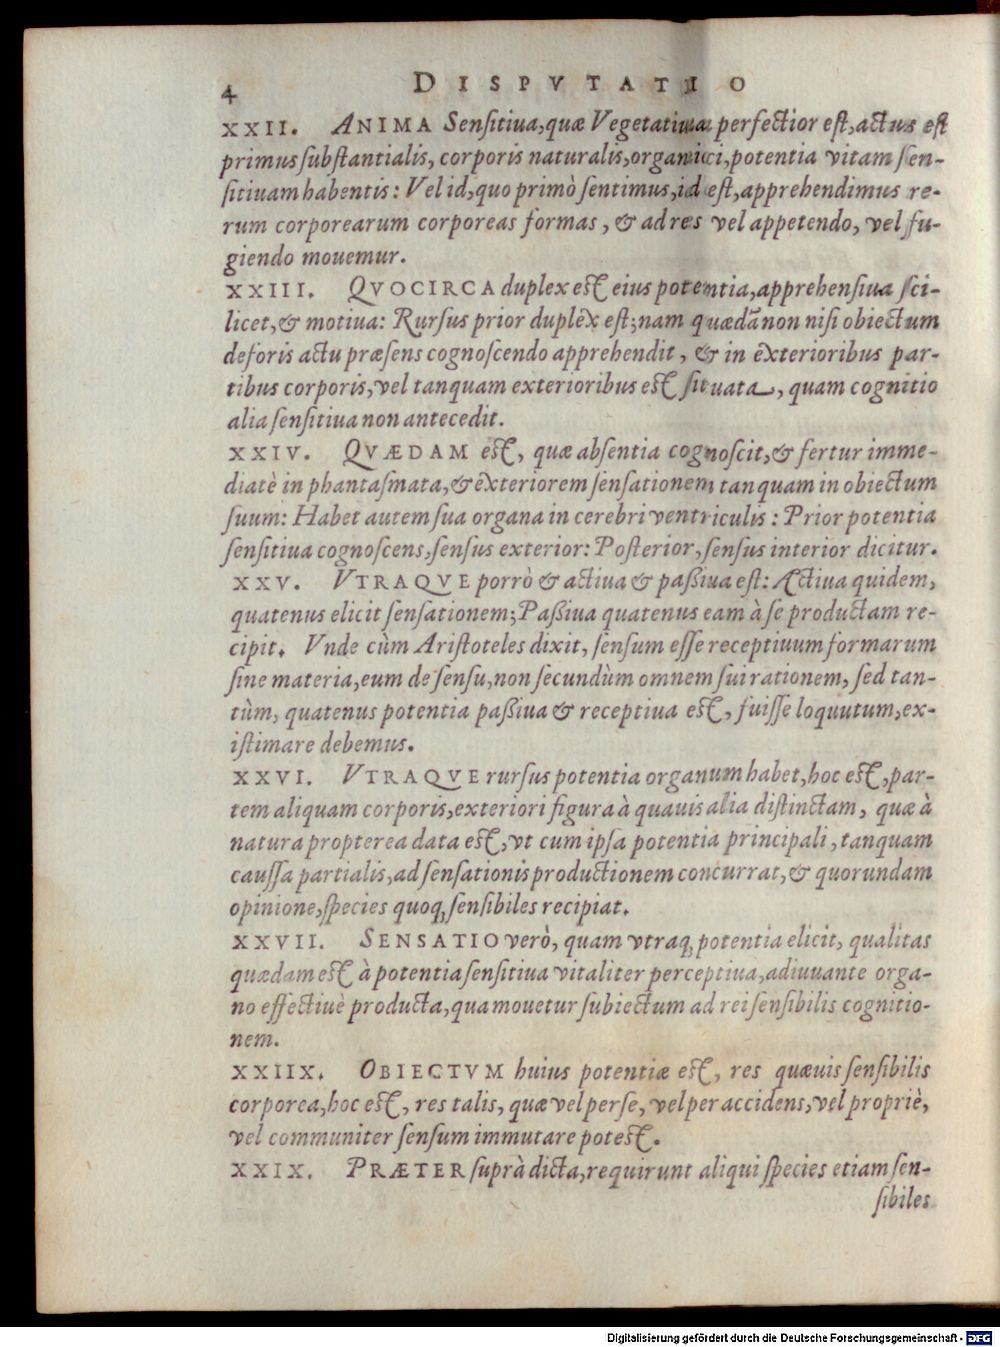 4 DISPVTATIO
XXII. ANIMA Senſitiua, quæ Vegetatiua perfectior eſt, actus eſt
primus ſubſtantialis, corporis naturalis, organici, potentia vitam ſen-
ſitiuam habentis: Vel id, quo primò ſentimus, id eſt, apprehendimus re-
rum corporearum corporeas formas, & ad res vel appetendo, vel fu-
giendo mouemur.
XXIII. QVOCIRCA duplex eſt eius potentia, apprehenſiua ſci-
licet, & motiua: Rurſus prior duplex eſt; nam quædã non niſi obiectum
deforis actu præſens cognoſcendo apprehendit, & in exterioribus par-
tibus corporis, vel tanquam exterioribus eſt ſituata, quam cognitio
alia ſenſitiua non antecedit.
XXIV. QVÆDAM eſt, quæ abſentia cognoſcit, & fertur imme-
diatè in phantaſmata, & exteriorem ſenſationem tanquam in obiectum
ſuum: Habet autem ſua organa in cerebri ventriculis: Prior potentia
ſenſitiua cognoſcens, ſenſus exterior: Poſterior, ſenſus interior dicitur.
XXV. VTRAQVE porrò & actiua & paßiua eſt: Actiua quidem,
quatenus elicit ſenſationem; Paßiua quatenus eam à ſe productam re-
cipit. Vnde cùm Ariſtoteles dixit, ſenſum eſſe receptiuum formarum
ſine materia, eum de ſenſu, non ſecundùm omnem ſui rationem, ſed tan-
tùm, quatenus potentia paßiua & receptiua eſt, fuiſſe loquutum, ex-
iſtimare debemus.
XXVI. VTRAQVE rurſus potentia organum habet, hoc eſt, par-
tem aliquam corporis, exteriori figura à quauis alia diſtinctam, quæ à
natura propterea data eſt, vt cum ipſa potentia principali, tanquam
cauſſa partialis, ad ſenſationis productionem concurrat, & quorundam
opinione, ſpecies quoq; ſenſibiles recipiat.
XXVII. SENSATIO verò, quam vtraq; potentia elicit, qualitas
quædam eſt à potentia ſenſitiua vitaliter perceptiua, adiuuante orga-
no effectiuè producta, qua mouetur ſubiectum ad rei ſenſibilis cognitio-
nem.
XXIIX. OBIECTVM huius potentiæ eſt, res quæuis ſenſibilis
corporea, hoc eſt, res talis, quæ vel per ſe, vel per accidens, vel propriè,
vel communiter ſenſum immutare poteſt.
XXIX. PRÆTER ſuprà dicta, requirunt aliqui ſpecies etiam ſen-
ſibiles
Digitalisierung gefördert durch die Deutsche Forschungsgemeinschaft - DFG